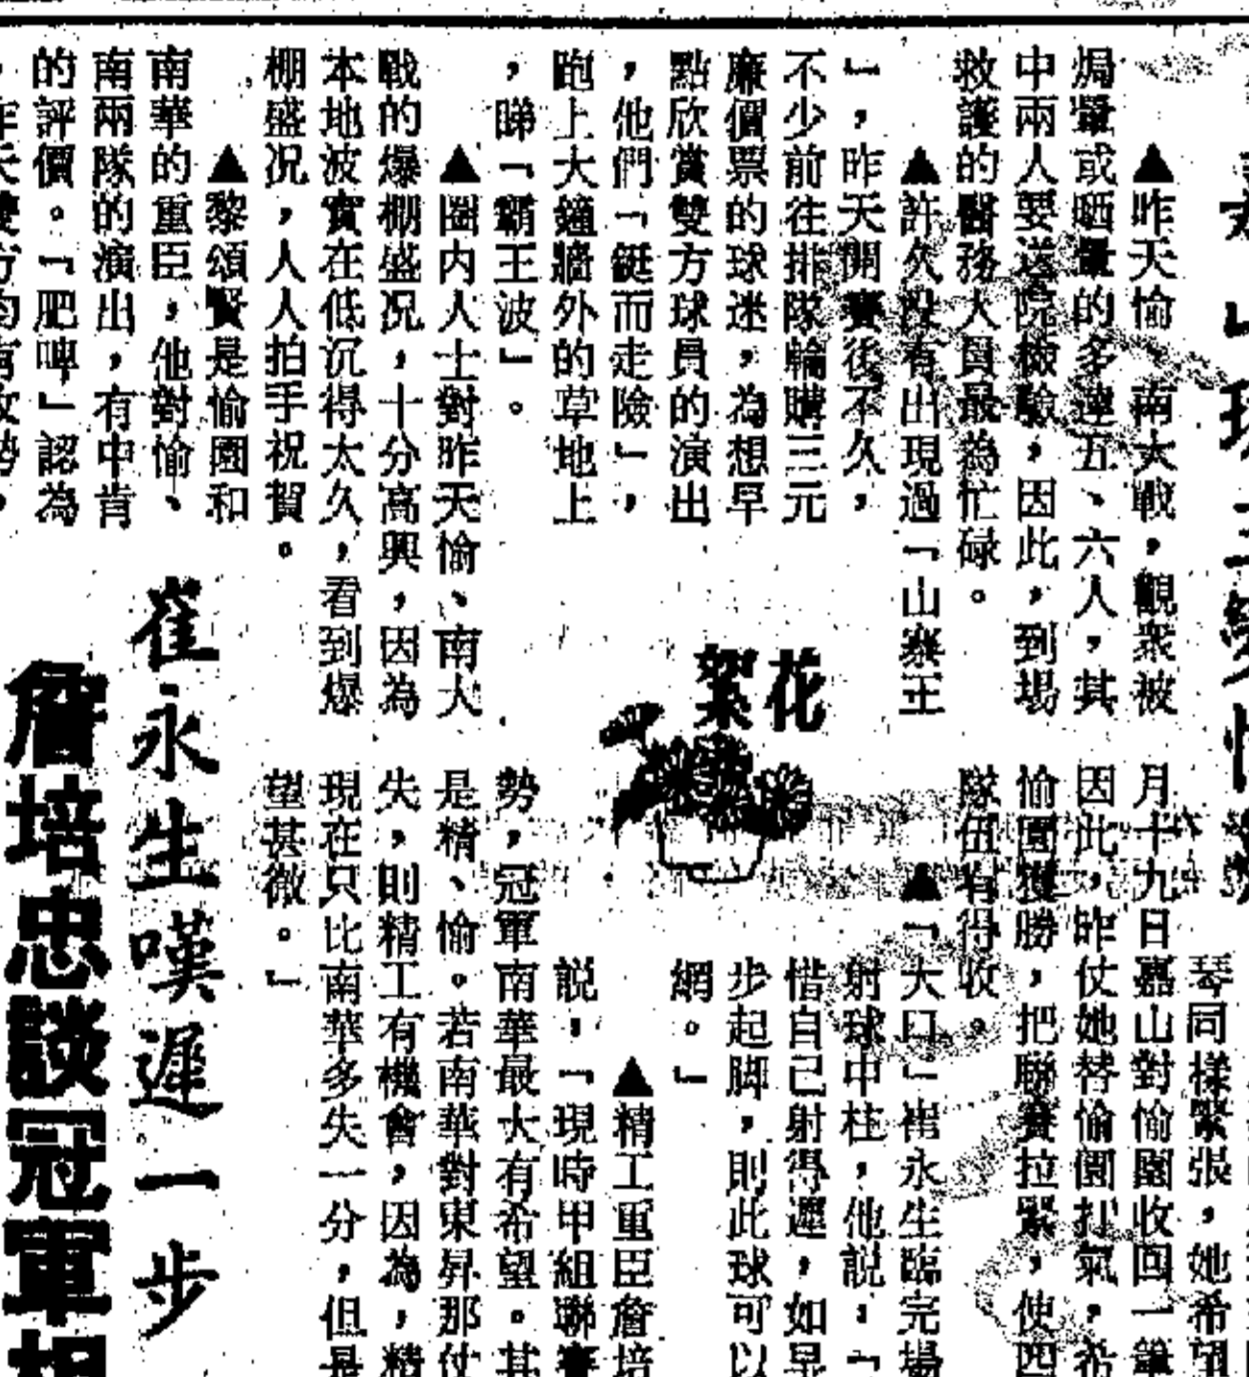 ▲昨天愉、南大戰，觀衆被
焗暈或晒暈的多達五、六人，其
中兩人要送院檢驗，因此，到場
救護的醫務人員最為忙碌。
▲許久沒有出現過「山寨王
」，昨天開賽後不久，
不少前往排隊輪購三元
廉價票的球迷，為想早
點欣賞雙方球員的演出
，他們「鋌而走險」，
跑上大鐘牆外的草地上
，睇「霸王波」。
▲圈内人士對昨天愉、南大
戰的爆棚盛况，十分高興，因為
本地波實在低沉得太久，看到爆
棚盛况，人人拍手祝賀。
▲黎頌賢是愉園和
南華的重臣，他對愉、
南兩隊的演出，有中肯
的評價。「肥啤」認為
花絮
琴同樣緊張，她希望
月十九日嘉山對愉園收回一筆
因此，昨仗她替愉園打氣，希
愉園獲勝，把聯賽拉緊，使四
隊伍有得收。
▲「大口」崔永生臨完場
射球中柱，他説：「
惜自己射得遲，如早
步起脚，則此球可以
網。」
▲精工重臣詹培
説，「現時甲組聯賽
勢，冠軍南華最大有希望。其
是精、愉。若南華對東昇那仗
失，則精工有機會，因為，精
現在只比南華多失一分，但是
望甚微。」
崔永生嘆遲一步
詹培忠談冠軍